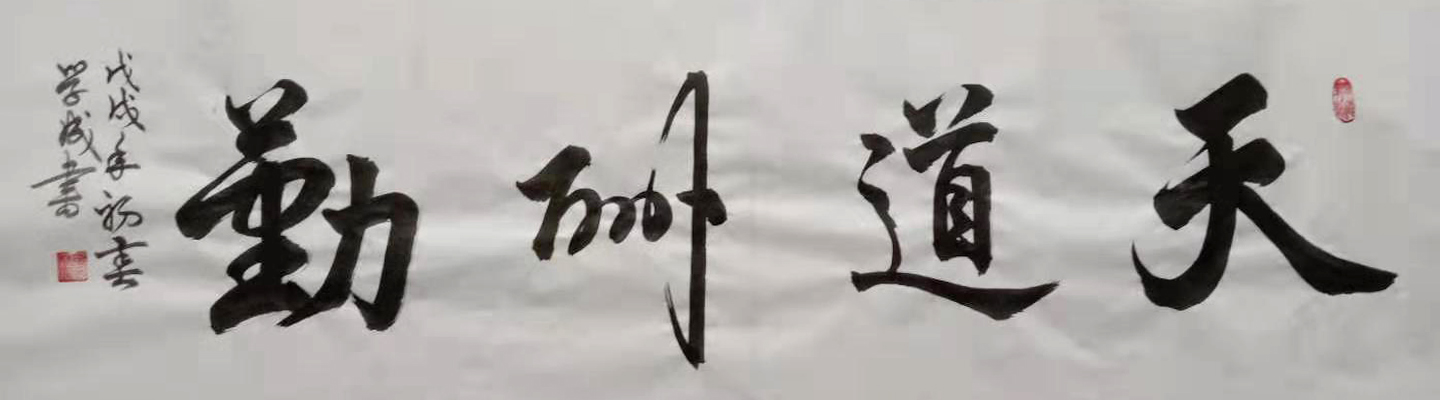 天道酬勤
戊戌年初春
学成書